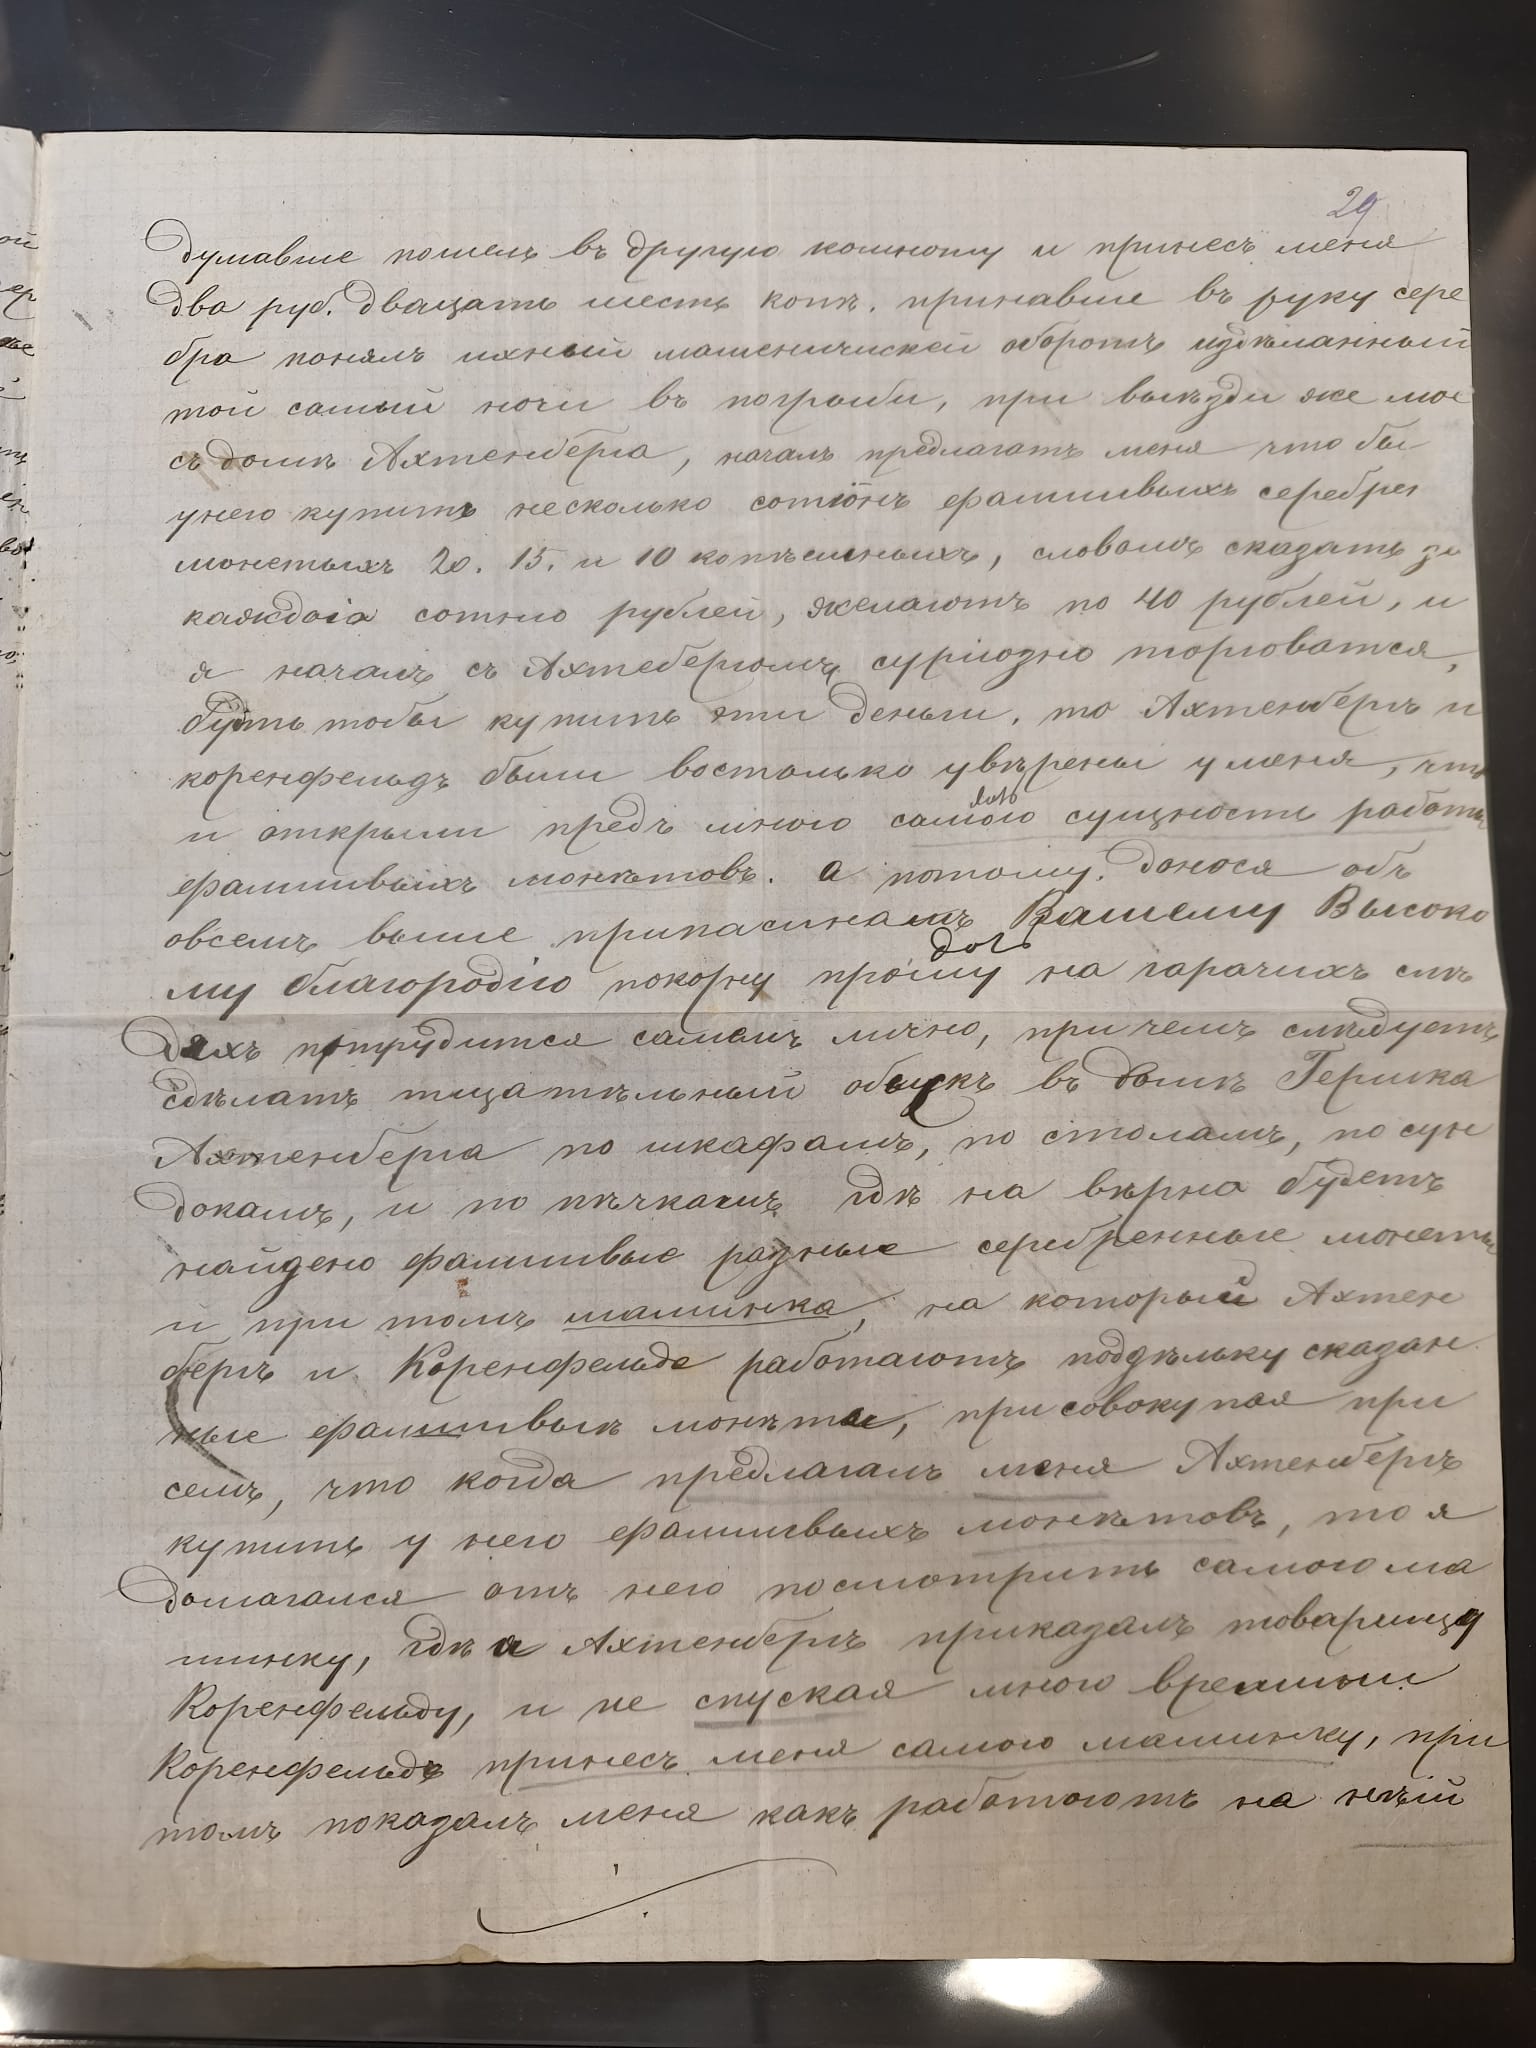 29
думавше пошелъ въ другую комноту и принесъ меня
два руб. двацать шесть копк. принавше въ руку сере
бра понялъ ихный машеническей оборотъ издѣланный
той самый ночи въ погрыби, при выѣзди же мое
съ домѣ Ахтенберга, началъ предлагатъ меня что бы
унего купить несколько сотюнъ фалшивыхъ серебрен
монетыхъ 20. 15. и 10 копѣешныхъ, словомъ сказать за
каждоіа сотню рублей, желаютъ по 40 рублей, и
я началъ съ Ахтебергомъ суріозно торговатся,
будтъ тобы купить эти деньги, то Ахтенбергъ и
коренфельдъ были востолько увѣрены уменя, что
и открыли предъ мною самою сущность работы
фалшивыхъ монѣтовъ. а потому. донося объ
овсемъ выше припасинамъ Вашему Высоко
му благородію покорну прошу на гарачихъ слѣ
дахъ потрудится самымъ лично, при чемъ слѣдуетъ
сдѣлатъ тщатѣльный обыскъ въ домѣ Гершка
Ахтенберга по шкафамъ, по столамъ, по сун
докамъ, и по пѣчкамъ гдѣ на вѣрна будетъ
найдено фалшивые разные серебренные монеты
и при томъ машинка, на который Ахтен
бергъ и Коренфельде работаютъ поддѣльку сказан
ные фалшивыѣ монѣты, присовокупая при
семъ, что когда предлагалъ меня Ахтенбергъ
купить у него фалшивыхъ монѣтовъ, то я
домагался отъ него посмотрить самого ма
шинку, гдѣ а Ахтенбергъ приказалъ товарищу
Коренфельду, и не спуская много времини
Коренфельдъ принесъ меня самою машинку, при
томъ показалъ меня какъ работаютъ на нѣй